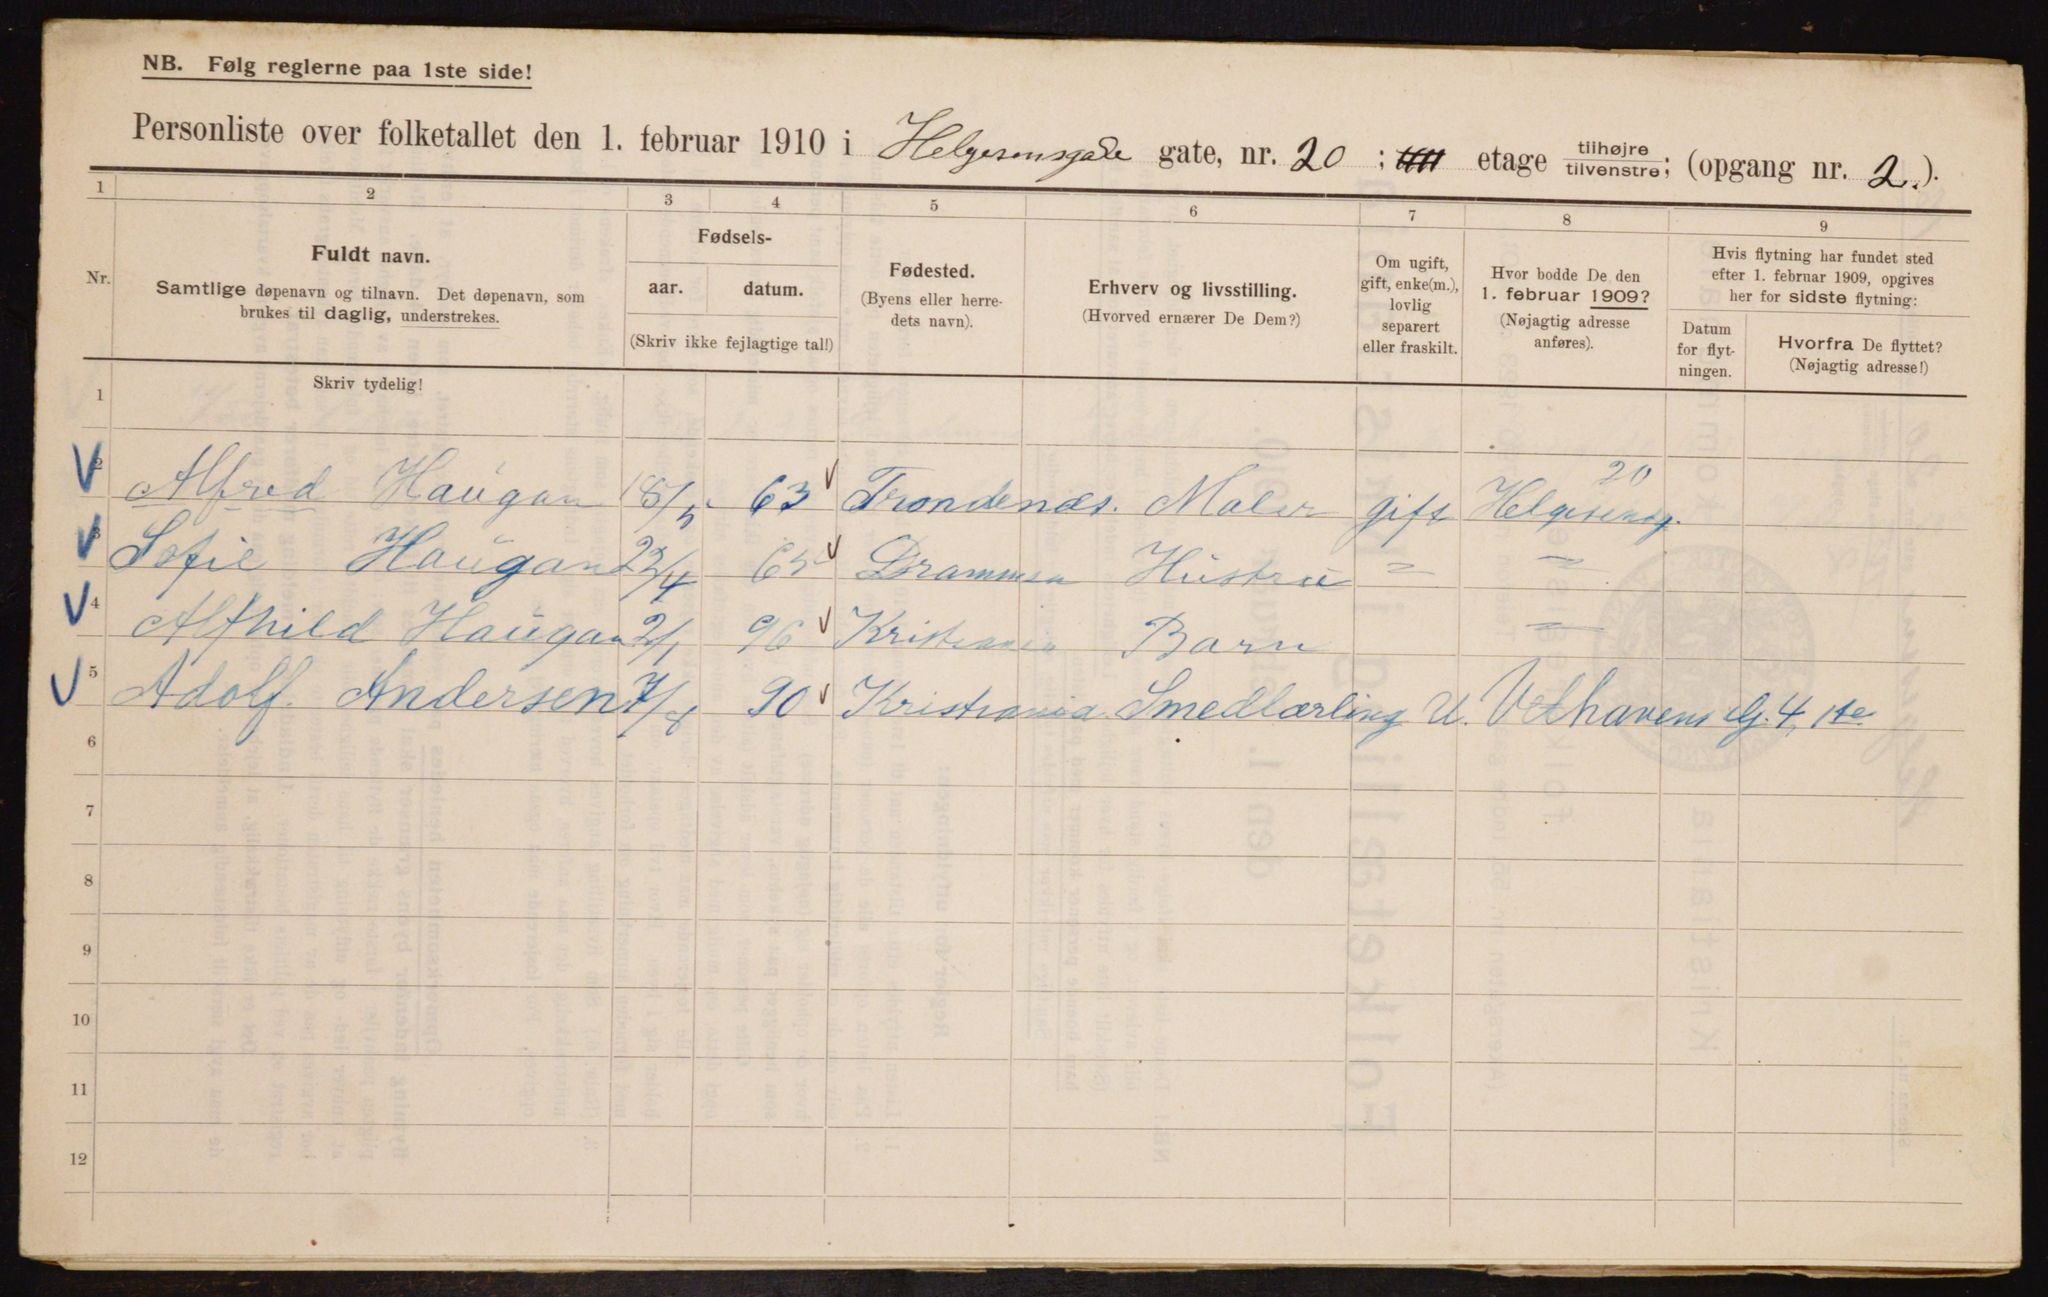 NB. Følg reglerne paa 1ste side!
Personliste over folketallet den 1. februar 1910 i Helgesensgade gate, nr. 20 ; etage tilhøjre tilvenstre; (opgang nr. 2.).
1 2 3 4 5 6 7 8 9
Nr.
Fuldt navn.
Samtlige døpenavn og tilnavn. Det døpenavn, som
brukes til daglig, understrekes.
Fødsels-
aar. datum.
(Skriv ikke fejlagtige tal!)
Fødested.
(Byens eller herre-
dets navn).
Erhverv og livsstilling.
(Hvorved ernærer De Dem?)
Om ugift,
gift, enke(m.),
lovlig
separert
eller fraskilt.
Hvor bodde De den
1. februar 1909?
(Nøjagtig adresse
anføres).
Hvis flytning har fundet sted
efter 1. februar 1909, opgives
her for sidste flytning:
Datum
for flyt-
ningen.
Hvorfra De flyttet?
(Nøjagtig adresse!)
Skriv tydelig!
1
2 Alfred Haugan 18/5 63 Trondenæs. Maler gift Helgesensg. 20
3 Sofie Haugan 23/4 65 Drammen Hustru " "
4 Alfhild Haugan 2/1 96 Kristiania Barn "
5 Adolf. Andersen 7/8 90 Kristiania Smedlærling U. Velhavens G. 4, 1te
6
7
8
9
10
11
12